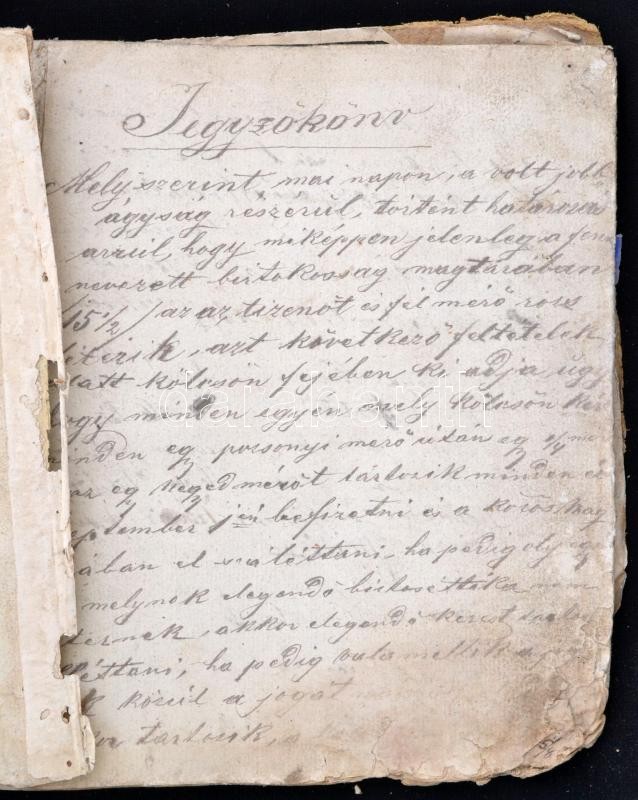 Jegyzőkönv
Mely szerint, mai napon, a volt jobb
ágyság részerül, történt határozat
arrúl, hogy miképpen jelenleg a fen
nevezett birtokosság magtárában
15 1/2 / az az tizenöt és fél mérő ros
létezik, azt következő feltételek
alatt kölcsön fejében ki adja úgy
hogy minden egyén mely kölcsön kér
minden egy posonyi mérő útan egy 1/4 mé
az egy neged mérőt tartozik minden
September 1én befizetni és a közös mag
ában el szálóttani, ha pedig oly egy
melynek elegendő biztosettéka nem
ternék, akkor elegendő kezest
léttani, ha pedig
közül a jogát
tartozik,
darabanth